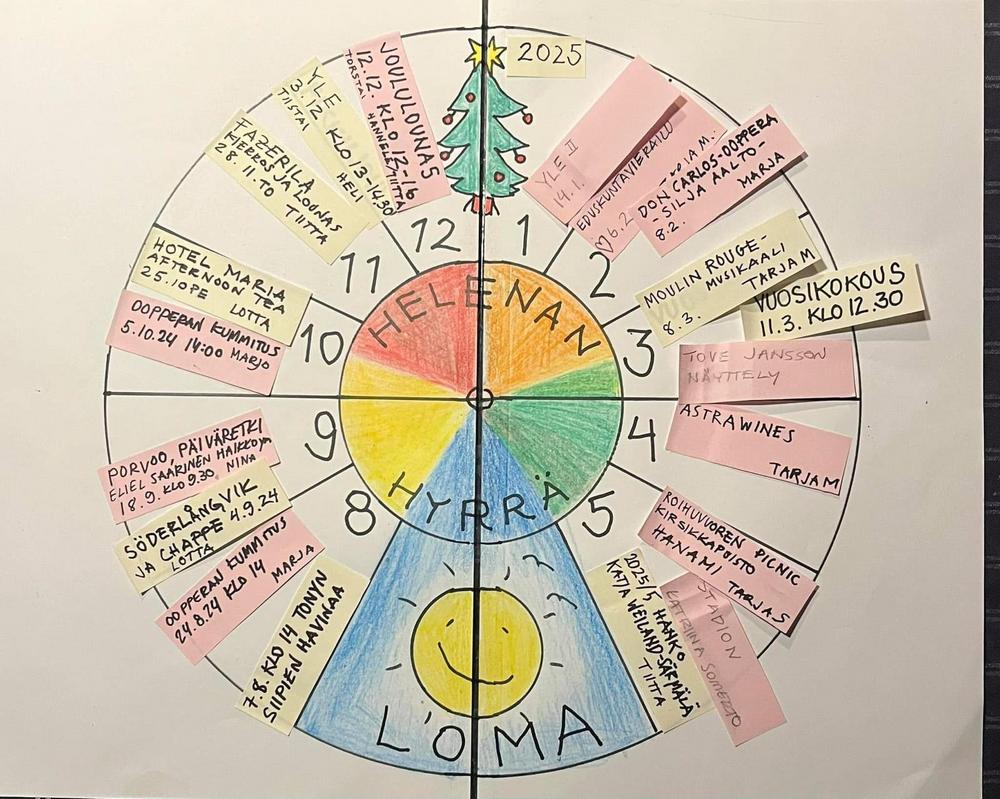 2025
12
1
2
3
4
5
8
9
10
11
HELENAN
HYRRÄ
LOMA
YLE II
14.1.
EDUSKUNTAVIERAILU
♡ 6.2
DON CARLOS-OOPPERA
- SILJA AALTO-
8.2. MARJA
MOULIN ROUGE-
MUSIKAALI
8.3. TARJA M
VUOSIKOKOUS
11.3. KLO 12.30
TOVE JANSSON
NÄYTTELY
ASTRAWINES
TARJA M
ROIHUVUOREN PICNIC
KIRSIKKAPUISTO
HANAMI TARJA S
STADION
LATRIINA
2025/5 HANKO
KATJA WEILAND-SÄRMÄLÄ
TIITTA
7.8. KLO 14 TONYN
SIIPIEN HAVINAA
OOPPERAN KUMMITUS
24.8.24 KLO 14
MARJA
SÖDERLÅNGVIK
JA CHAPPE 4.9.24
LOTTA
PORVOO, PÄIVÄRETKI
ELIEL SAARINEN HAIKKO
18.9. KLO 9.30 NINA
OOPPERAN KUMMITUS
5.10.24 14:00 MARJO
HOTEL MARIA
AFTERNOON TEA
25.10 PE LOTTA
FAZERILA
KIERROS JA LOUNAS
28.11. TO TIITTA
YLE
3.12 KLO 13-14.30
TIISTAI HELI
JOULULOUNAS
12.12. KLO 12-16
TORSTAI HANNELE/TIITTA